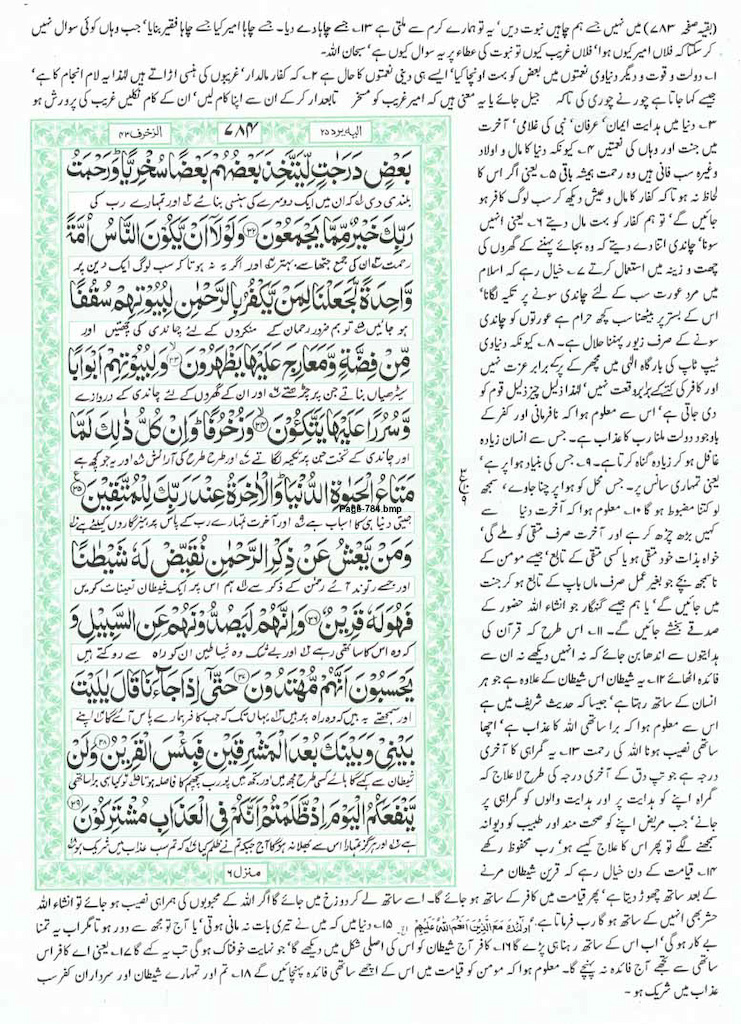 (بقیہ صفحہ ۷۸۳) میں نہیں جسے ہم چاہیں نبوت دیں' یہ تو ہمارے کرم سے ملتی ہے ۱۳۔ جسے چاہا دے دیا۔ جسے چاہا امیر کیا جسے چاہا فقیر بنایا' جب وہاں کوئی سوال نہیں
کر سکتا کہ فلاں امیر کیوں ہوا' فلاں غریب کیوں تو نبوت کی عطاء پر یہ سوال کیوں ہے' سبحان اللہ۔
۱۔ دولت و قوت و دیگر دنیاوی نعمتوں میں بعض کو بہت اونچا کیا' ایسے ہی دینی نعمتوں کا حال ہے ۲۔ کہ کفار مالدار' غریبوں کی ہنسی اڑاتے ہیں لہٰذا یہ لام انجام کا ہے'
جیسے کہا جاتا ہے چور نے چوری کی تاکہ جیل جائے یا یہ معنی ہیں کہ امیر غریب کو مسخر تابعدار کر کے ان سے اپنا کام لیں' ان کے کام نکلیں غریب کی پرورش ہو
الیہ یرد ۲۵
۷۸۴
الزخرف ۴۳
بَعْضٍ دَرَجٰتٍ لِّیَتَّخِذَ بَعْضُهُمْ بَعْضًا سُخْرِیًّا ؕ وَرَحْمَتُ
بلندی دی کہ ان میں ایک دوسرے کی ہنسی بنائے اور تمہارے رب کی
رَبِّكَ خَیْرٌ مِّمَّا یَجْمَعُوْنَ ﴿۳۲﴾ وَلَوْلَاۤ اَنْ یَّكُوْنَ النَّاسُ اُمَّةً
رحمت ان کی جمع جتھا سے بہتر اور اگر یہ نہ ہوتا کہ سب لوگ ایک دین پر
وَّاحِدَةً لَّجَعَلْنَا لِمَنْ یَّكْفُرُ بِالرَّحْمٰنِ لِبُیُوْتِهِمْ سُقُفًا
ہو جائیں تو ہم ضرور رحمان کے منکروں کے لئے چاندی کی چھتیں اور
مِّنْ فِضَّةٍ وَّمَعَارِجَ عَلَیْهَا یَظْهَرُوْنَ ﴿۳۳﴾ وَلِبُیُوْتِهِمْ اَبْوَابًا
سیڑھیاں بناتے جن پر چڑھتے اور ان کے گھروں کے لئے چاندی کے دروازے
وَّسُرُرًا عَلَیْهَا یَتَّكِـُٔوْنَ ﴿۳۴﴾ وَزُخْرُفًا ؕ وَاِنْ كُلُّ ذٰلِكَ لَمَّا
اور چاندی کے تخت جن پر تکیہ لگاتے اور طرح طرح کی آرائش اور یہ جو کچھ ہے
مَتَاعُ الْحَیٰوةِ الدُّنْیَا ؕ وَالْاٰخِرَةُ عِنْدَ رَبِّكَ لِلْمُتَّقِیْنَ ﴿۳۵﴾
جیتی دنیا ہی کا اسباب ہے اور آخرت تمہارے رب کے پاس پرہیزگاروں کیلئے ہے
Page-784.bmp
وَمَنْ یَّعْشُ عَنْ ذِكْرِ الرَّحْمٰنِ نُقَیِّضْ لَهٗ شَیْطٰنًا
اور جسے رتوند آئے رحمٰن کے ذکر سے ہم اس پر ایک شیطان تعینات کریں
فَهُوَ لَهٗ قَرِیْنٌ ﴿۳۶﴾ وَاِنَّهُمْ لَیَصُدُّوْنَهُمْ عَنِ السَّبِیْلِ وَ
کہ وہ اس کا ساتھی رہے اور بے شک وہ شیاطین ان کو راہ سے روکتے ہیں
یَحْسَبُوْنَ اَنَّهُمْ مُّهْتَدُوْنَ ﴿۳۷﴾ حَتّٰۤی اِذَا جَآءَنَا قَالَ یٰلَیْتَ
اور سمجھتے یہ ہیں کہ وہ راہ پر ہیں یہاں تک کہ جب کافر ہمارے پاس آئے گا اپنے
بَیْنِیْ وَبَیْنَكَ بُعْدَ الْمَشْرِقَیْنِ فَبِئْسَ الْقَرِیْنُ ﴿۳۸﴾ وَلَنْ
شیطان سے کہے گا ہائے کسی طرح مجھ میں اور تجھ میں پورب پچھم کا فاصلہ ہوتا تو کیا ہی برا ساتھی
یَّنْفَعَكُمُ الْیَوْمَ اِذْ ظَّلَمْتُمْ اَنَّكُمْ فِی الْعَذَابِ مُشْتَرِكُوْنَ ﴿۳۹﴾
ہے اور ہرگز تمہارا اس سے بھلا نہ ہوگا آج جبکہ تم نے ظلم کیا کہ تم سب عذاب میں شریک ہو
منزل ۶
۳۔ دنیا میں ہدایت ایمان' عرفان' نبی کی غلامی' آخرت
میں جنت اور وہاں کی نعمتیں ۴۔ کیونکہ دنیا کا مال و اولاد
وغیرہ سب فانی ہیں وہ رحمت ہمیشہ باقی ۵۔ یعنی اگر اس کا
لحاظ نہ ہوتا کہ کفار کا مال و عیش دیکھ کر سب لوگ کافر ہو
جائیں گے' تو ہم کفار کو بہت مال دیتے ۶۔ یعنی انہیں
سونا' چاندی اتنا دے دیتے کہ وہ بجائے پہننے کے گھروں کی
چھت و زینہ میں استعمال کرتے ۷۔ خیال رہے کہ اسلام
میں مرد عورت سب کے لئے چاندی سونے پر تکیہ لگانا'
اس کے بستر پر بیٹھنا سب کچھ حرام ہے عورتوں کو چاندی
سونے کے صرف زیور پہننا حلال ہے۔ ۸۔ کیونکہ دنیاوی
ٹیپ ٹاپ کی بارگاہ الٰہی میں مچھر کے پر کے برابر عزت نہیں
اور کافر کی کتے کے برابر وقعت نہیں' لہٰذا ذلیل چیز ذلیل قوم کو
دی جاتی ہے' اس سے معلوم ہوا کہ نافرمانی اور کفر کے
باوجود دولت ملنا رب کا عذاب ہے۔ جس سے انسان زیادہ
غافل ہو کر زیادہ گناہ کرتا ہے۔ ۹۔ جس کی بنیاد ہوا پر ہے'
یعنی تمہاری سانس پر۔ جس محل کو ہوا پر چنا جاوے' سمجھ
لو کتنا مضبوط ہو گا ۱۰۔ معلوم ہوا کہ آخرت دنیا سے
کہیں بڑھ چڑھ کر ہے اور آخرت صرف متقی کو ملے گی'
خواہ بذات خود متقی ہو یا کسی متقی کے تابع' جیسے مومن کے
ناسمجھ بچے جو بغیر عمل صرف ماں باپ کے تابع ہو کر جنت
میں جائیں گے' یا ہم جیسے گنہگار جو انشاء اللہ حضور کے
صدقے بخشے جائیں گے۔ ۱۱۔ اس طرح کہ قرآن کی
ہدایتوں سے اندھا بن جائے کہ نہ انہیں دیکھے نہ ان سے
فائدہ اٹھائے ۱۲۔ یہ شیطان اس شیطان کے علاوہ ہے جو ہر
انسان کے ساتھ رہتا ہے' جیسا کہ حدیث شریف میں ہے
اس سے معلوم ہوا کہ برا ساتھی اللہ کا عذاب ہے' اچھا
ساتھی نصیب ہونا اللہ کی رحمت ۱۳۔ یہ گمراہی کا آخری
درجہ ہے جو تپ دق کے آخری درجہ کی طرح لا علاج کہ
گمراہ اپنے کو ہدایت پر اور ہدایت والوں کو گمراہی پر
جانے' جب مریض اپنے کو صحت مند اور طبیب کو دیوانہ
سمجھنے لگے تو پھر اس کا علاج کیسے ہو' رب محفوظ رکھے
۱۴۔ قیامت کے دن خیال رہے کہ قرین شیطان مرنے
کے بعد ساتھ چھوڑ دیتا ہے' پھر قیامت میں کافر کے ساتھ ہو جائے گا۔ اسے ساتھ لے کر دوزخ میں جائے گا اگر اللہ کے محبوبوں کی ہمراہی نصیب ہو جائے تو انشاء اللہ
حشر بھی انہیں کے ساتھ ہو گا رب فرماتا ہے۔ اُولٰٓئِكَ مَعَ الَّذِیْنَ اَنْعَمَ اللّٰهُ عَلَیْهِمْ الخ ۱۵۔ دنیا میں کہ میں نے تیری بات نہ مانی ہوتی' یا آج تو مجھ سے دور ہوتا مگر اب یہ تمنا
بے کار ہو گی' اب اس کے ساتھ رہنا ہی پڑے گا ۱۶۔ کافر آج شیطان کو اس کی اصلی شکل میں دیکھے گا' جو نہایت خوفناک ہو گی تب یہ کہے گا ۱۷۔ یعنی اے کافر اس
ساتھی سے تجھے آج فائدہ نہ پہنچے گا۔ معلوم ہوا کہ مومن کو قیامت میں اس کے اچھے ساتھی فائدہ پہنچائیں گے ۱۸۔ تم اور تمہارے شیطان اور سرداران کفر سب
عذاب میں شریک ہو۔